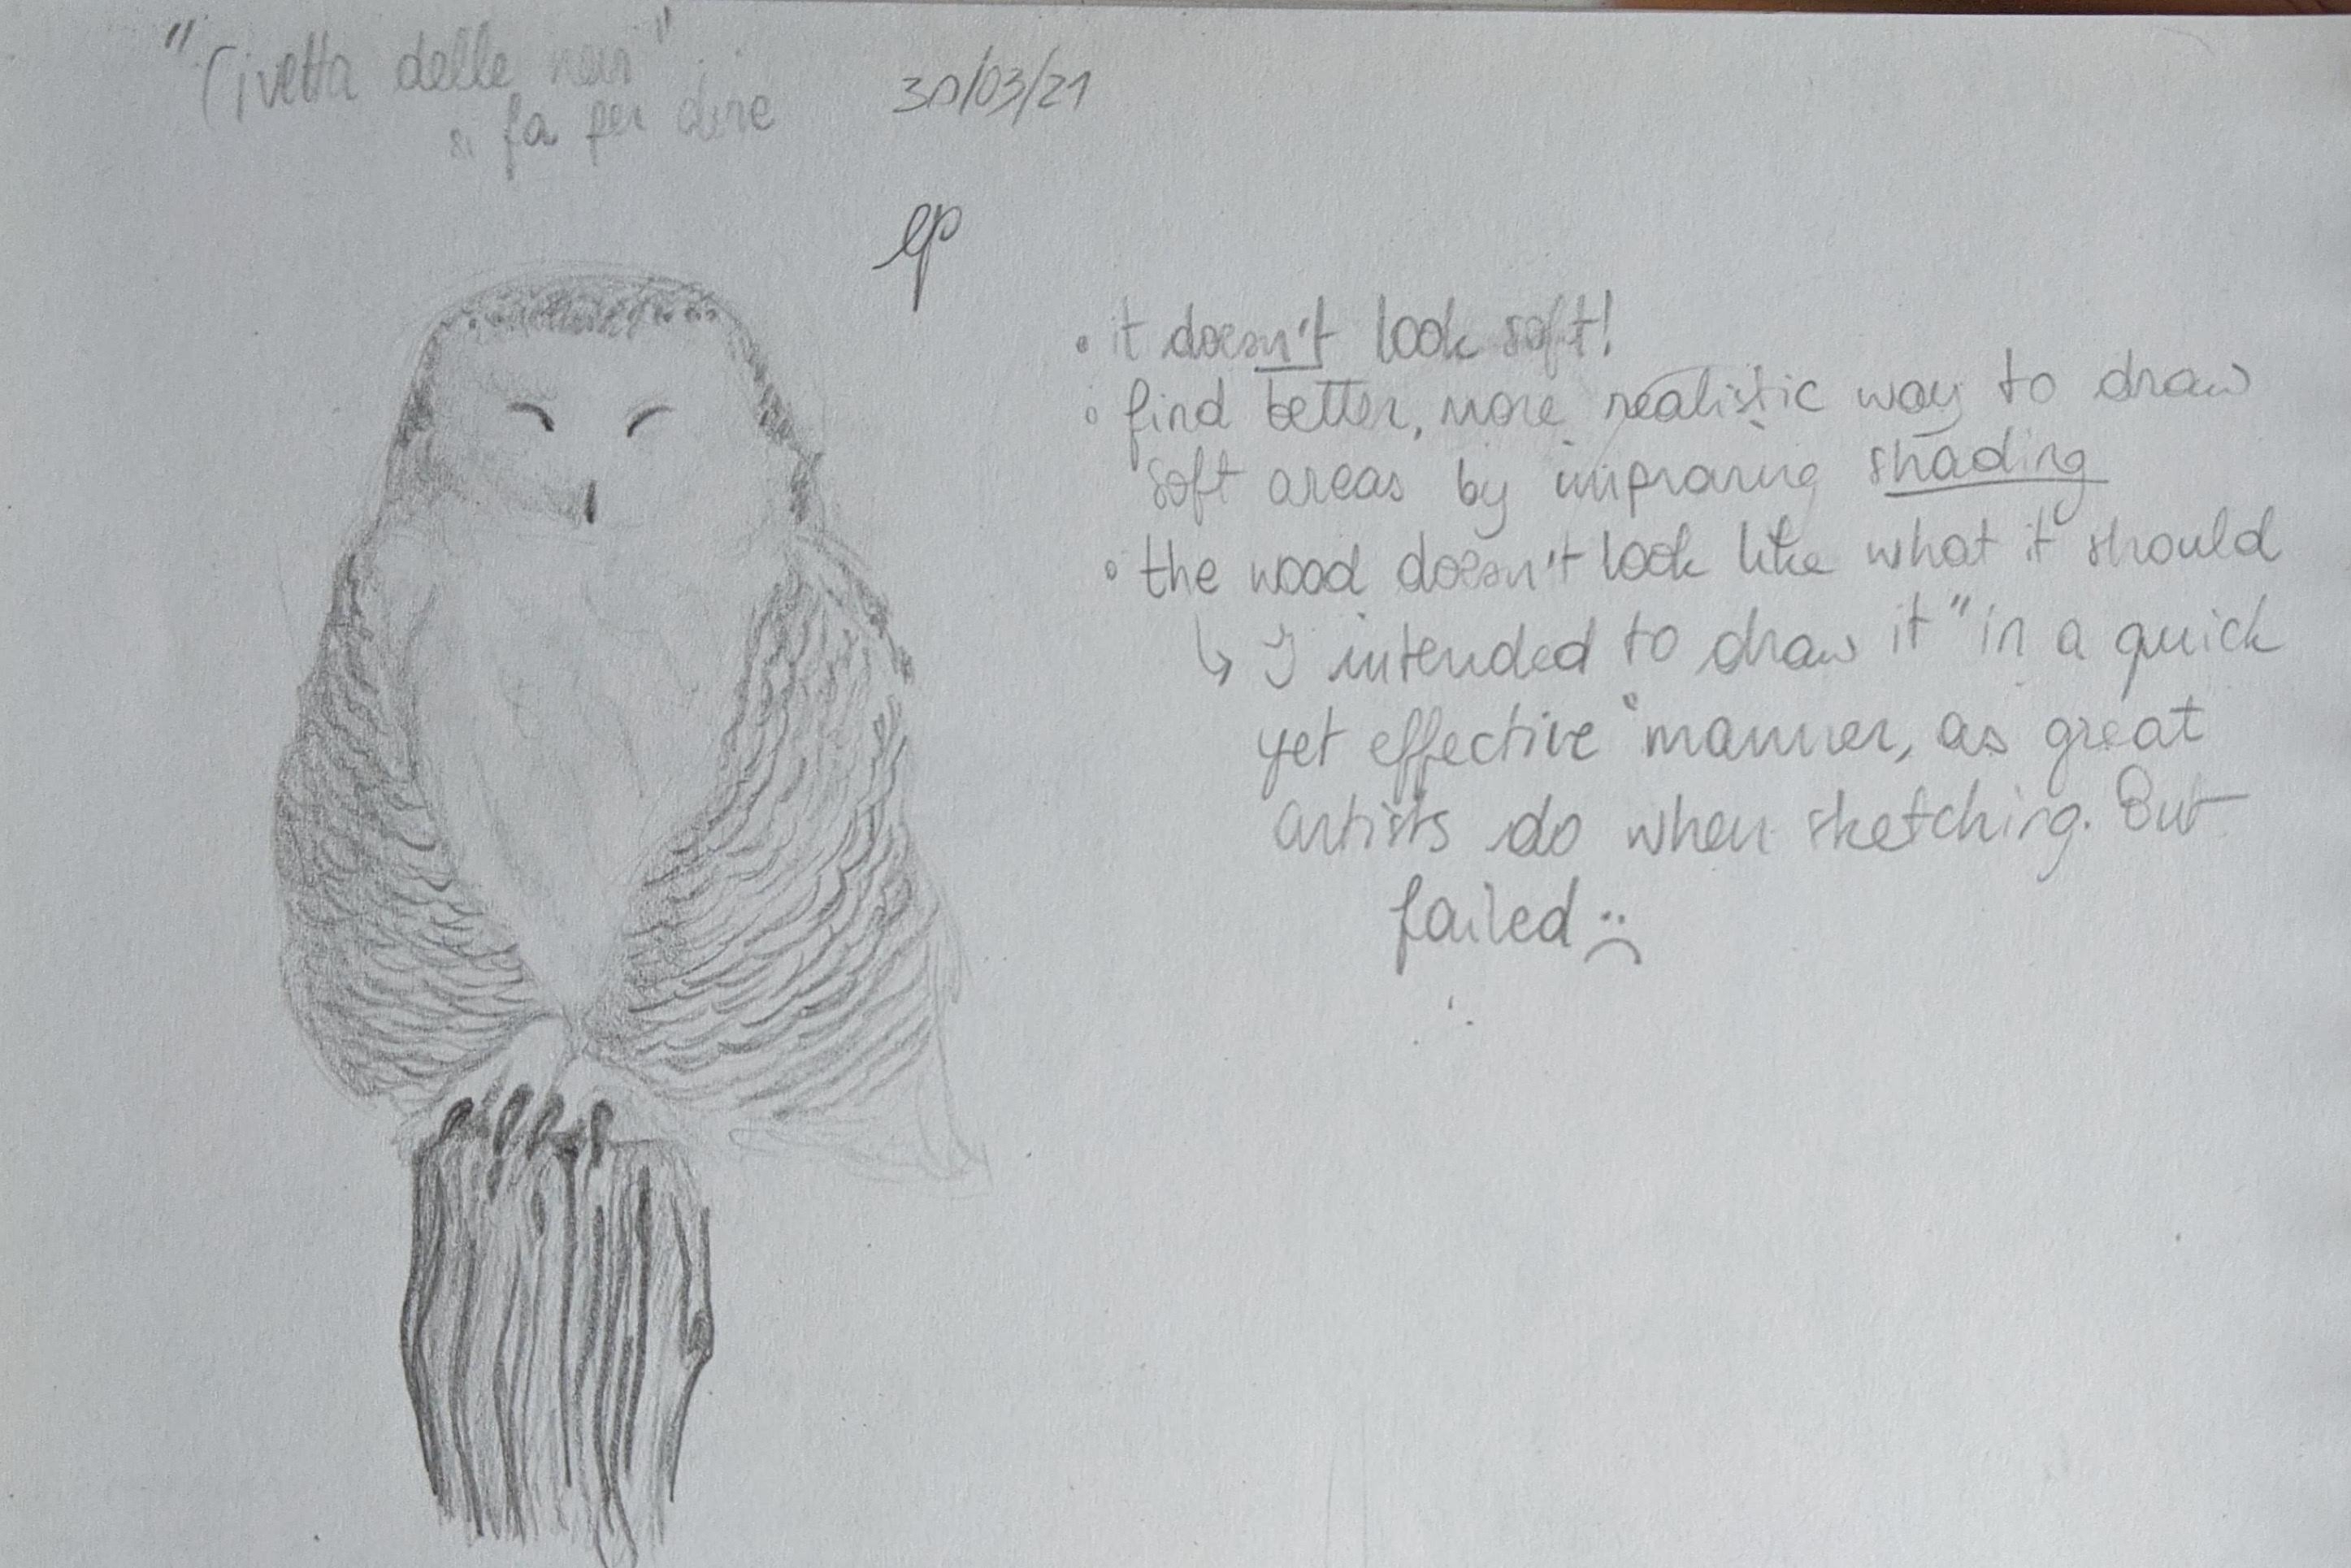 "Civetta delle nevi"
si fa per dire
30/03/21
ep
• it doesn't look soft!
• find better, more realistic way to draw
soft areas by improving shading
• the wood doesn't look like what it should
↳ I intended to draw it "in a quick
yet effective" manner, as great
artists do when sketching. But
failed :(